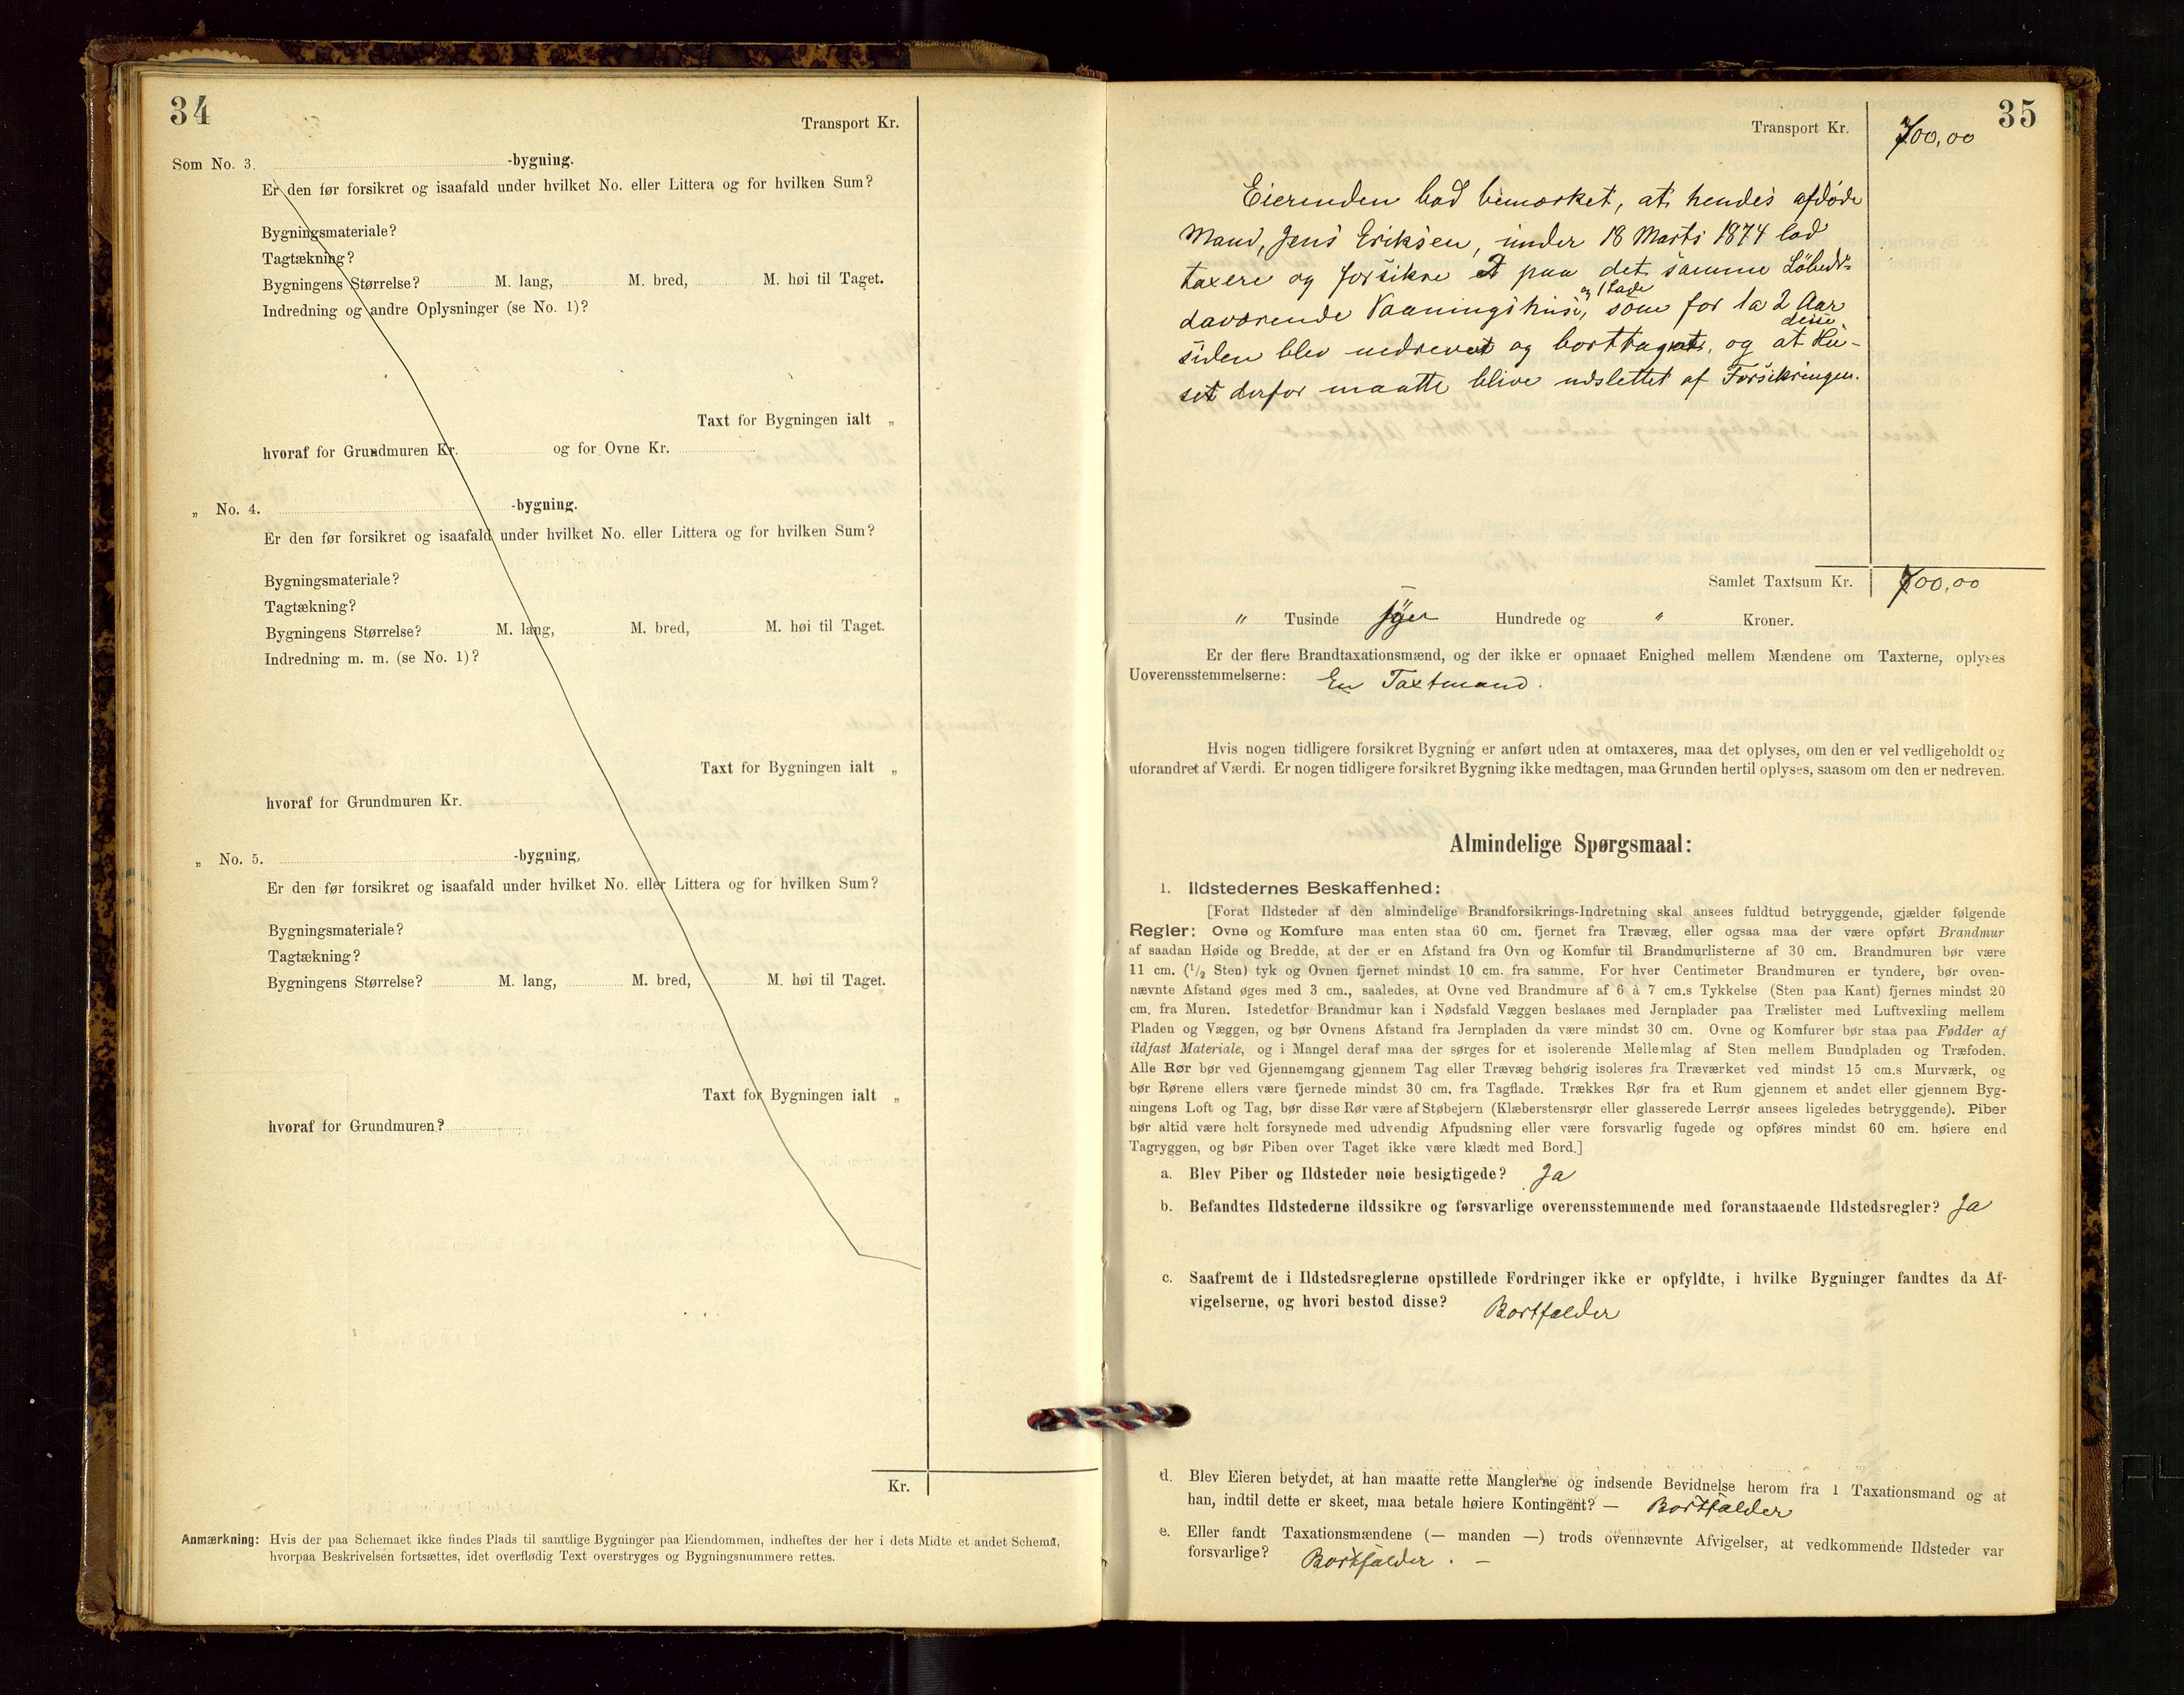 34
Transport Kr.
Som No. 3. -bygning.
Er den før forsikret og isaafald under hvilket No. eller Littera og for hvilken Sum?
Bygningsmateriale?
Tagtækning?
Bygningens Størrelse? M. lang, M. bred, M. høi til Taget.
Indredning og andre Oplysninger (se No. 1)?
Taxt for Bygningen ialt „
hvoraf for Grundmuren Kr. og for Ovne Kr.
„ No. 4. -bygning.
Er den før forsikret og isaafald under hvilket No. eller Littera og for hvilken Sum?
Bygningsmateriale?
Tagtækning?
Bygningens Størrelse? M. lang, M. bred, M. høi til Taget.
Indredning m. m. (se No. 1)?
Taxt for Bygningen ialt „
hvoraf for Grundmuren Kr.
„ No. 5. -bygning,
Er den før forsikret og isaafald under hvilket No. eller Littera og for hvilken Sum?
Bygningsmateriale?
Tagtækning?
Bygningens Størrelse? M. lang, M. bred, M. høi til Taget.
Taxt for Bygningen ialt „
hvoraf for Grundmuren?
Kr.
Anmærkning: Hvis der paa Schemaet ikke findes Plads til samtlige Bygninger paa Eiendommen, indheftes der her i dets Midte et andet Schema,
hvorpaa Beskrivelsen fortsættes, idet overflødig Text overstryges og Bygningsnummere rettes.
35
Transport Kr. 700,00
Eierinden bad bemærket, at hendes afdøde
Mand, Jens Eriksen, under 18 Marts 1874 lod
taxere og forsikre 2 paa det samme Løbedr=
og 1 Lade
daværende Vaaningshuse, som for 1 a 2 Aar
disse
siden blev nedrevet og borttaget, og at Hu-
set derfor maatte blive udslettet af Forsikringen.
Samlet Taxtsum Kr. 700,00
„ Tusinde syv Hundrede og „ Kroner.
Er der flere Brandtaxationsmænd, og der ikke er opnaaet Enighed mellem Mændene om Taxterne, oplyses
Uoverensstemmelserne: En Taxtmand.
Hvis nogen tidligere forsikret Bygning er anført uden at omtaxeres, maa det oplyses, om den er vel vedligeholdt og
uforandret af Værdi. Er nogen tidligere forsikret Bygning ikke medtagen, maa Grunden hertil oplyses, saasom om den er nedreven.
Almindelige Spørgsmaal:
1. Ildstedernes Beskaffenhed:
[Forat Ildsteder af den almindelige Brandforsikrings-Indretning skal ansees fuldtud betryggende, gjælder følgende
Regler: Ovne og Komfure maa enten staa 60 cm. fjernet fra Trævæg, eller ogsaa maa der være opført Brandmur
af saadan Høide og Bredde, at der er en Afstand fra Ovn og Komfur til Brandmurlisterne af 30 cm. Brandmuren bør være
11 cm. (1/2 Sten) tyk og Ovnen fjernet mindst 10 cm. fra samme. For hver Centimeter Brandmuren er tyndere, bør oven-
nævnte Afstand øges med 3 cm., saaledes, at Ovne ved Brandmure af 6 à 7 cm.s Tykkelse (Sten paa Kant) fjernes mindst 20
cm. fra Muren. Istedetfor Brandmur kan i Nødsfald Væggen beslaaes med Jernplader paa Trælister med Luftvexling mellem
Pladen og Væggen, og bør Ovnens Afstand fra Jernpladen da være mindst 30 cm. Ovne og Komfurer bør staa paa Fødder af
ildfast Materiale, og i Mangel deraf maa der sørges for et isolerende Mellemlag af Sten mellem Bundpladen og Træfoden.
Alle Rør bør ved Gjennemgang gjennem Tag eller Trævæg behørig isoleres fra Træværket ved mindst 15 cm.s Murværk, og
bør Rørene ellers være fjernede mindst 30 cm. fra Tagflade. Trækkes Rør fra et Rum gjennem et andet eller gjennem Byg-
ningens Loft og Tag, bør disse Rør være af Støbejern (Klæberstensrør eller glasserede Lerrør ansees ligeledes betryggende). Piber
bør altid være helt forsynede med udvendig Afpudsning eller være forsvarlig fugede og opføres mindst 60 cm. høiere end
Tagryggen, og bør Piben over Taget ikke være klædt med Bord.]
a. Blev Piber og Ildsteder nøie besigtigede? Ja
b. Befandtes Ildstederne ildssikre og forsvarlige overensstemmende med foranstaaende Ildstedsregler? Ja
c. Saafremt de i Ildstedsreglerne opstillede Fordringer ikke er opfyldte, i hvilke Bygninger fandtes da Af-
vigelserne, og hvori bestod disse? Bortfalder
d. Blev Eieren betydet, at han maatte rette Manglerne og indsende Bevidnelse herom fra 1 Taxationsmand og at
han, indtil dette er skeet, maa betale høiere Kontingent? — Bortfalder
e. Eller fandt Taxationsmændene (— manden —) trods ovennævnte Afvigelser, at vedkommende Ildsteder var
forsvarlige? Bortfalder. –